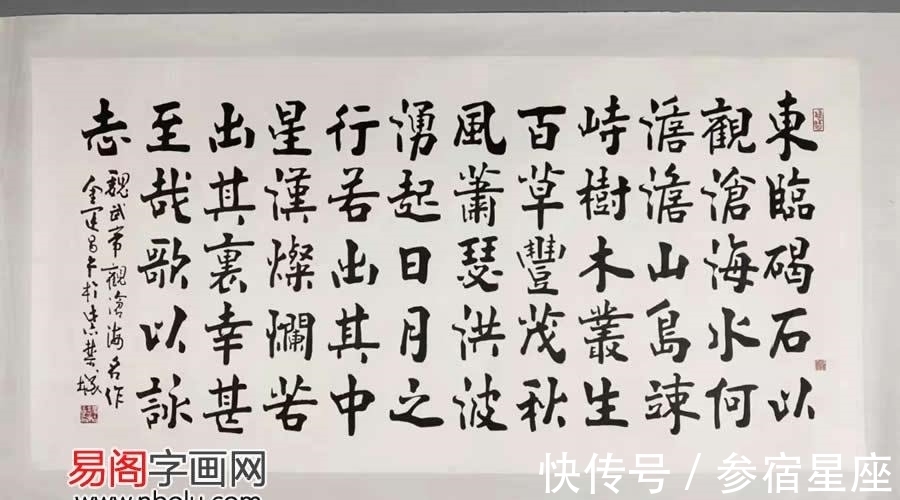 東臨碣石以
觀滄海水何
澹澹山島竦
峙樹木叢生
百草豐茂秋
風蕭瑟洪波
湧起日月之
行若出其中
星漢燦爛若
出其裏幸甚
至哉歌以詠
志
魏武帝觀滄海名作
金运昌
易阁字画网
快传号 / 参宿星座